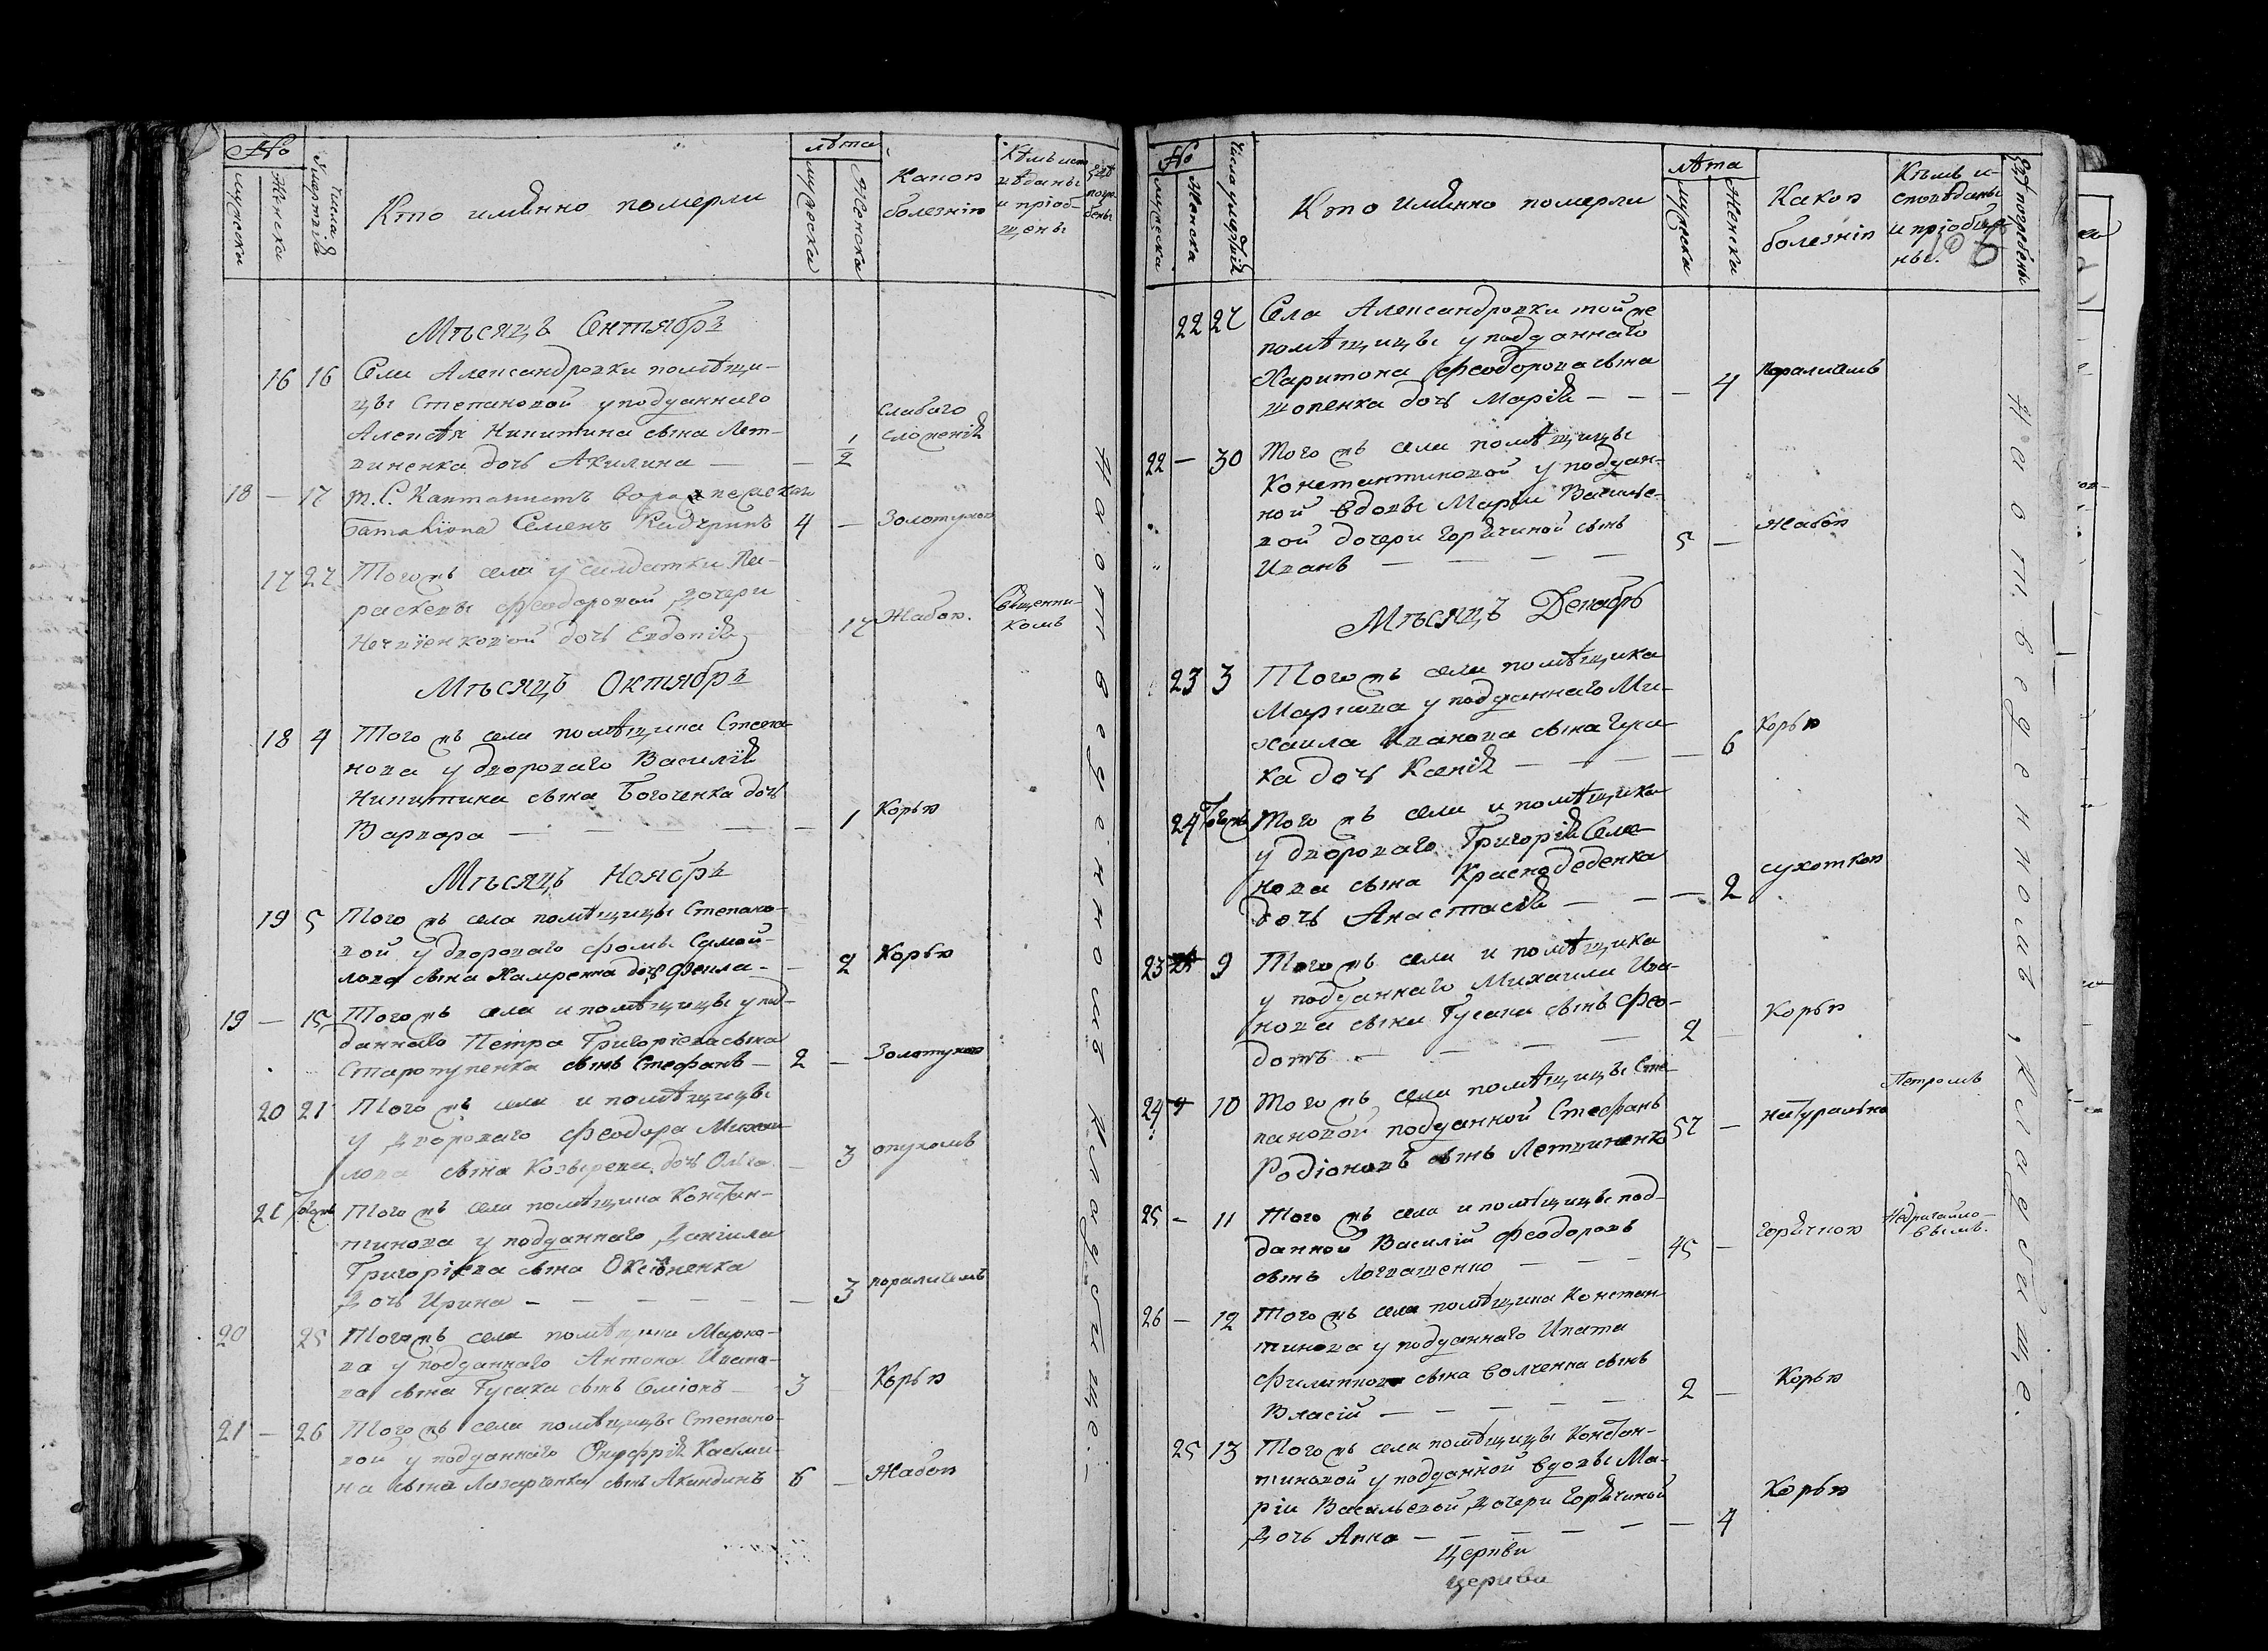 №
мужеска
Женска
Числа умертвія
Кто имянно померли
лѣта
мужеска
Женска
Какою болезнію
Кѣмъ исповѣданы и пріобщены
Гдѣ погребены
Мѣсяцъ Сентябрь
16 16 Села Александровки помѣщи-
цы Степановой у подданнаго
Алексѣя Никитина сына Лет-
виненка дочь Акилина — — 1/2 слабаго сложенія
18 — 17 т. С. Кантанистъ
Семенъ 4 — Золотухою
17 27 Того жъ села у салдатки Па-
раскевы Феодоровой дочери
дочь Евдокія 17 Жабою. Священни-
комъ
Мѣсяцъ Октябрь
18 4 Того жъ села помѣщика Степа-
нова у двороваго Василія
Никитина сына Богоченка дочь
Варвара — — — 1 Корью
Мѣсяцъ Ноябрь
19 5 Того жъ села помѣщицы Степано-
вой у двороваго Фомы Самой-
лова сына дочь Фекла — 2 Корью
19 — 15 Того жъ села и помѣщицы у под-
даннаго Петра Григорьева сына
Старопупенка сынъ Стефанъ — 2 — Золотухою
20 21 Того жъ села и помѣщицы
у двороваго Феодора Михаи
лова сына Козырева дочь Ольга — 3 опухомъ
21 Тогожъ Того жъ села помѣщика Констан-
тинова у подданнаго Даніила
Григоріева сына Оксененка
Дочь Ирина — — — — — 3 параличемъ
20 25 Тогожъ села помѣщика Марко-
ва у подданнаго Антона Ивано-
ва сына Гусака сынъ Симіонъ — 3 Корью
21 — 26 Того жъ села помѣщицы Степано-
вой у подданнаго Онуфрія Касьми-
на сына Лазарченка сынъ Акиндинъ 6 — Жабою
На отведенномъ кладбище. —
№
мужеска
Женска
Число умертвій
Кто имянно померли
лѣта
мужеска
Женска
Какою болезнію
Кѣмъ и-
споведаны
и пріобще
ны.
Гдѣ погребены
106
22 27 Села Александровки той же
помѣщицы у подданнаго
Харитона Феодорова сына
Шопенка дочь Марія — — — 4 Параличемъ
22 — 30 Того жъ села помѣщицы
Константиновой у поддан-
ной вдовы Марьи Василье-
вой дочери Горячиной сынъ
Иванъ — — — 5 — Жабою
Мѣсяцъ Декабрь
23 3 Того жъ села помѣщика
Маркова у подданнаго Ми-
хаила Иванова сына Гуса
ка дочь Ксенія — — — — 6 Корью
24 Тогожъ Того жъ села и помѣщика
у двороваго Григорія Семе
нова сына Краснодеденка
дочь Анастасія — — — 2 сухоткою
23 9 Того жъ села и помѣщика
у подданнаго Михаила Ива-
нова сына Гусака сынъ Фео-
дотъ — — — — 2 — Корью
24 10 Того жъ села помѣщицы Сте
пановой подданной Стефанъ
Родіоновъ сынъ Летвиненко 57 — натурально Петромъ
25 — 11 Того жъ села и помѣщицы под-
данной Василій Феодоровъ
сынъ Логвашенко — — — 45 — горячкою
26 — 12 Того жъ села помѣщика Констан
тинова у подданнаго Ипата
Филиппова сына Волченка сынъ
Власій — — — — — 2 — Корью
25 13 Того жъ села помѣщицы Констан-
тиновой у подданной вдовы Ма-
ріи Васильевой дочери Горячиной
Дочь Анна — — — — — — 4 Корью
Церкви
церкви
На отведенномъ кладбище.